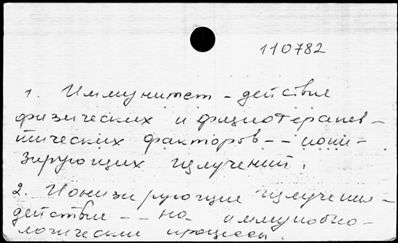 110782
1. Иммунитет - действие
физических и физиотерапев-
тических факторов -- иони-
зирующих излучений.
2. Ионизирующие излучения -
действие -- на иммунобио-
логические процессы.